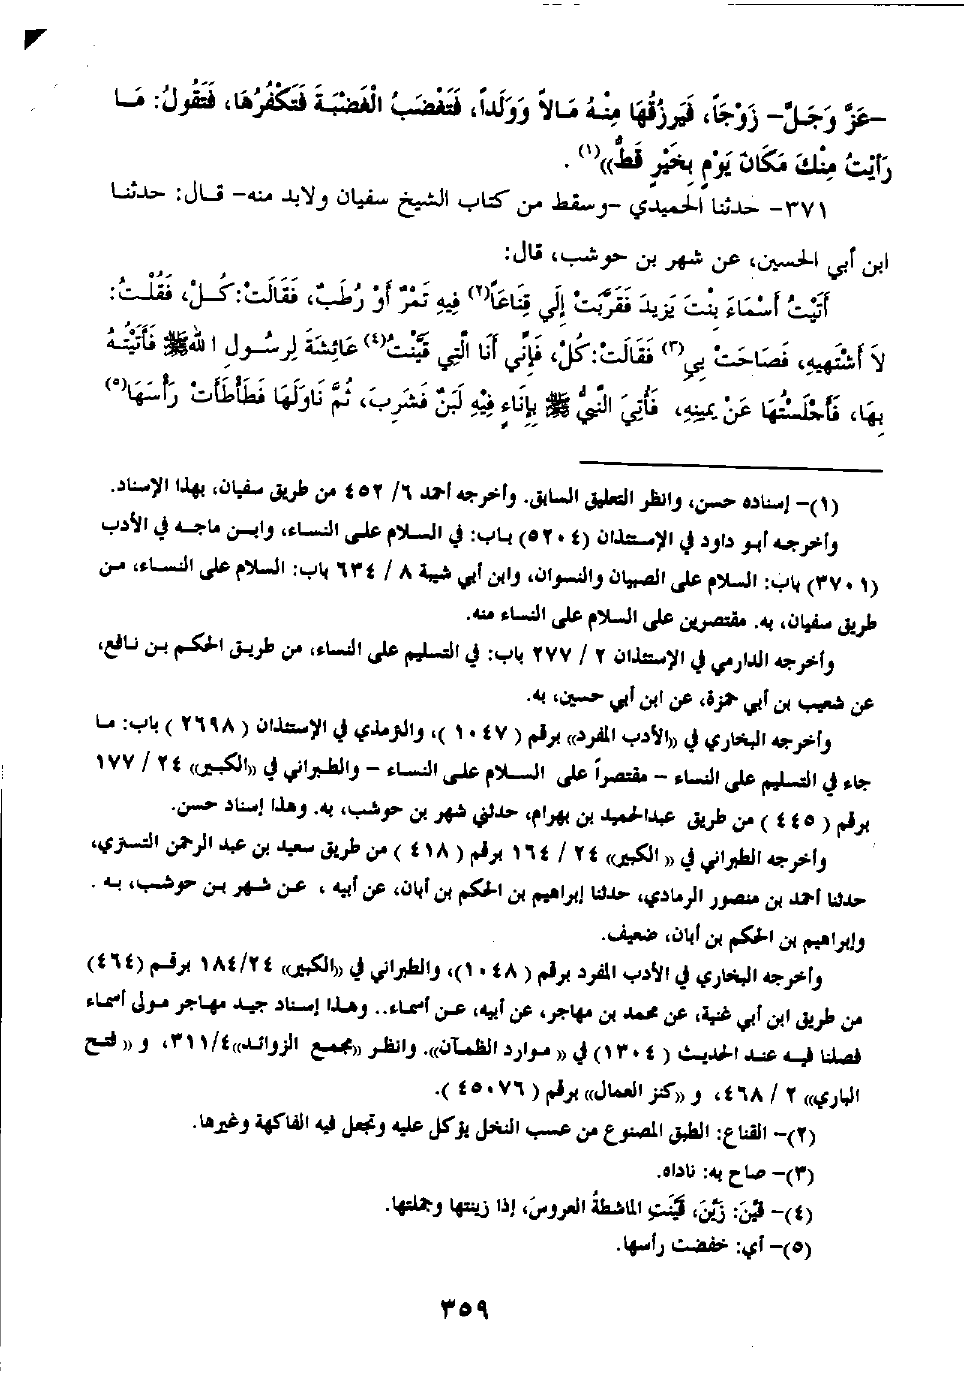 -عَزَّ وَجَلَّ- زَوْجَاً، فَيَرزُقُهَا مِنْهُ مَالاً وَوَلَداً، فَتَغْضَبُ الْغَضْبَةَ فَتَكْفُرُهَا، فَتَقُولُ: مَا
رَأَيْتُ مِنْكَ مَكَانَ يَوْمٍ بِخَيْرٍ قَطُّ»(١) .
٣٧١- حدثنا الحميدي -وسقط من كتاب الشيخ سفيان ولابد منه- قال: حدثنا
ابن أبي الحسين، عن شهر بن حوشب، قال:
أَتَيْتُ أَسْمَاءَ بِنْتَ يَزِيدَ فَقَرَّبَتْ إِلَي قِنَاعَاً(٢) فِيهِ تَمْرٌ أَوْ رُطَبٌ، فَقَالَتْ: كُلْ، فَقُلْتُ:
لاَ أَشْتَهِيهِ، فَصَاحَتْ بِي(٣) فَقَالَتْ: كُلْ، فَإِنِّي أَنَا الَّتِي قَيَّنْتُ(٤) عَائِشَةَ لِرسُولِ اللهِ ﷺ فَأَتَيْتُهُ
بِهَا، فَأَجْلَسْتُهَا عَنْ يَمِينِهِ، فَأُتِيَ النَّبِيُّ ﷺ بِإِنَاءٍ فِيْهِ لَبَنٌ فَشَرِبَ، ثُمَّ نَاوَلَهَا فَطَأْطَأَتْ رَأْسَهَا(٥)
(١)- إسناده حسن، وانظر التعليق السابق. وأخرجه أحمد ٦/ ٤٥٢ من طريق سفيان، بهذا الإسناد.
وأخرجه أبو داود في الإستئذان (٥٢٠٤) باب: في السلام على النساء، وابن ماجه في الأدب
(٣٧٠١) باب: السلام على الصبيان والنسوان، وابن أبي شيبة ٨ / ٦٣٤ باب: السلام على النساء، من
طريق سفيان، به. مقتصرين على السلام على النساء منه.
وأخرجه الدارمي في الإستئذان ٢ / ٢٧٧ باب: في التسليم على النساء، من طريق الحكم بن نافع،
عن شعيب بن أبي حمزة، عن ابن أبي حسين، به.
وأخرجه البخاري في «الأدب المفرد» برقم ( ١٠٤٧ )، والترمذي في الإستئذان ( ٢٦٩٨ ) باب: ما
جاء في التسليم على النساء - مقتصراً على السلام على النساء - والطبراني في «الكبير» ٢٤ / ١٧٧
برقم ( ٤٤٥ ) من طريق عبدالحميد بن بهرام، حدثني شهر بن حوشب، به. وهذا إسناد حسن.
وأخرجه الطبراني في « الكبير» ٢٤ / ١٦٤ برقم ( ٤١٨ ) من طريق سعيد بن عبد الرحمن التستري،
حدثنا أحمد بن منصور الرمادي، حدثنا إبراهيم بن الحكم بن أبان، عن أبيه ، عن شهر بن حوشب، به .
وإبراهيم بن الحكم بن أبان، ضعيف.
وأخرجه البخاري في الأدب المفرد برقم ( ١٠٤٨ )، والطبراني في «الكبير» ١٨٤/٢٤ برقم (٤٦٤)
من طريق ابن أبي غنية، عن محمد بن مهاجر، عن أبيه، عن أسماء.. وهذا إسناد جيد مهاجر مولى أسماء
فصلنا فيه عند الحديث ( ١٣٠٤) في « موارد الظمآن». وانظر «مجمع الزوائد» ٣١١/٤، و « فتح
الباري» ٢ / ٤٦٨، و «كنز العمال» برقم ( ٤٥٠٧٦ ).
(٢)- القناع: الطبق المصنوع من عسب النخل يؤكل عليه وتجعل فيه الفاكهة وغيرها.
(٣)- صاح به: ناداه.
(٤)- قَيَّنَ: زَيَّنَ، قَيَّنَتِ الماشطةُ العروسَ، إذا زينتها وجملتها.
(٥)- أي: خفضت رأسها.
٣٥٩